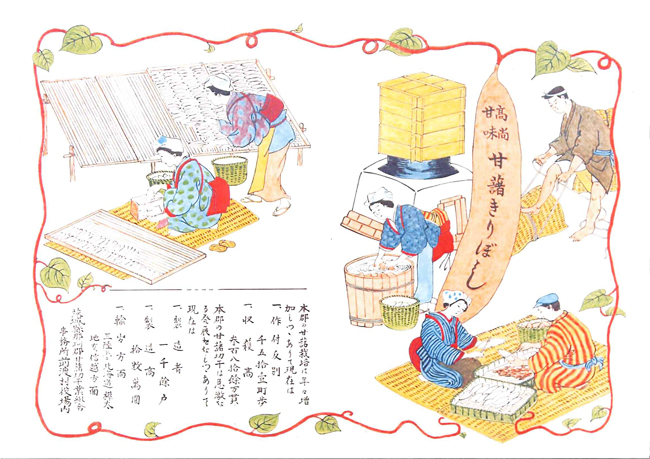 高尚
甘味
甘藷きりぼし
本郡の甘藷栽培は年々増
加しつゝありて現在は
一、作付反別
千五拾壹町歩
一、収穫高
参百八拾餘万貫
本郡の甘藷切干は急激な
る發展をなしつゝありて
現在は
一、製造者
一千餘戸
一、製造高
拾数萬圓
一、輸出方面
三陸、北海道、樺太
地方信越方面
茨城縣那珂郡甘藷切干業組合
事務所前渡村役場内